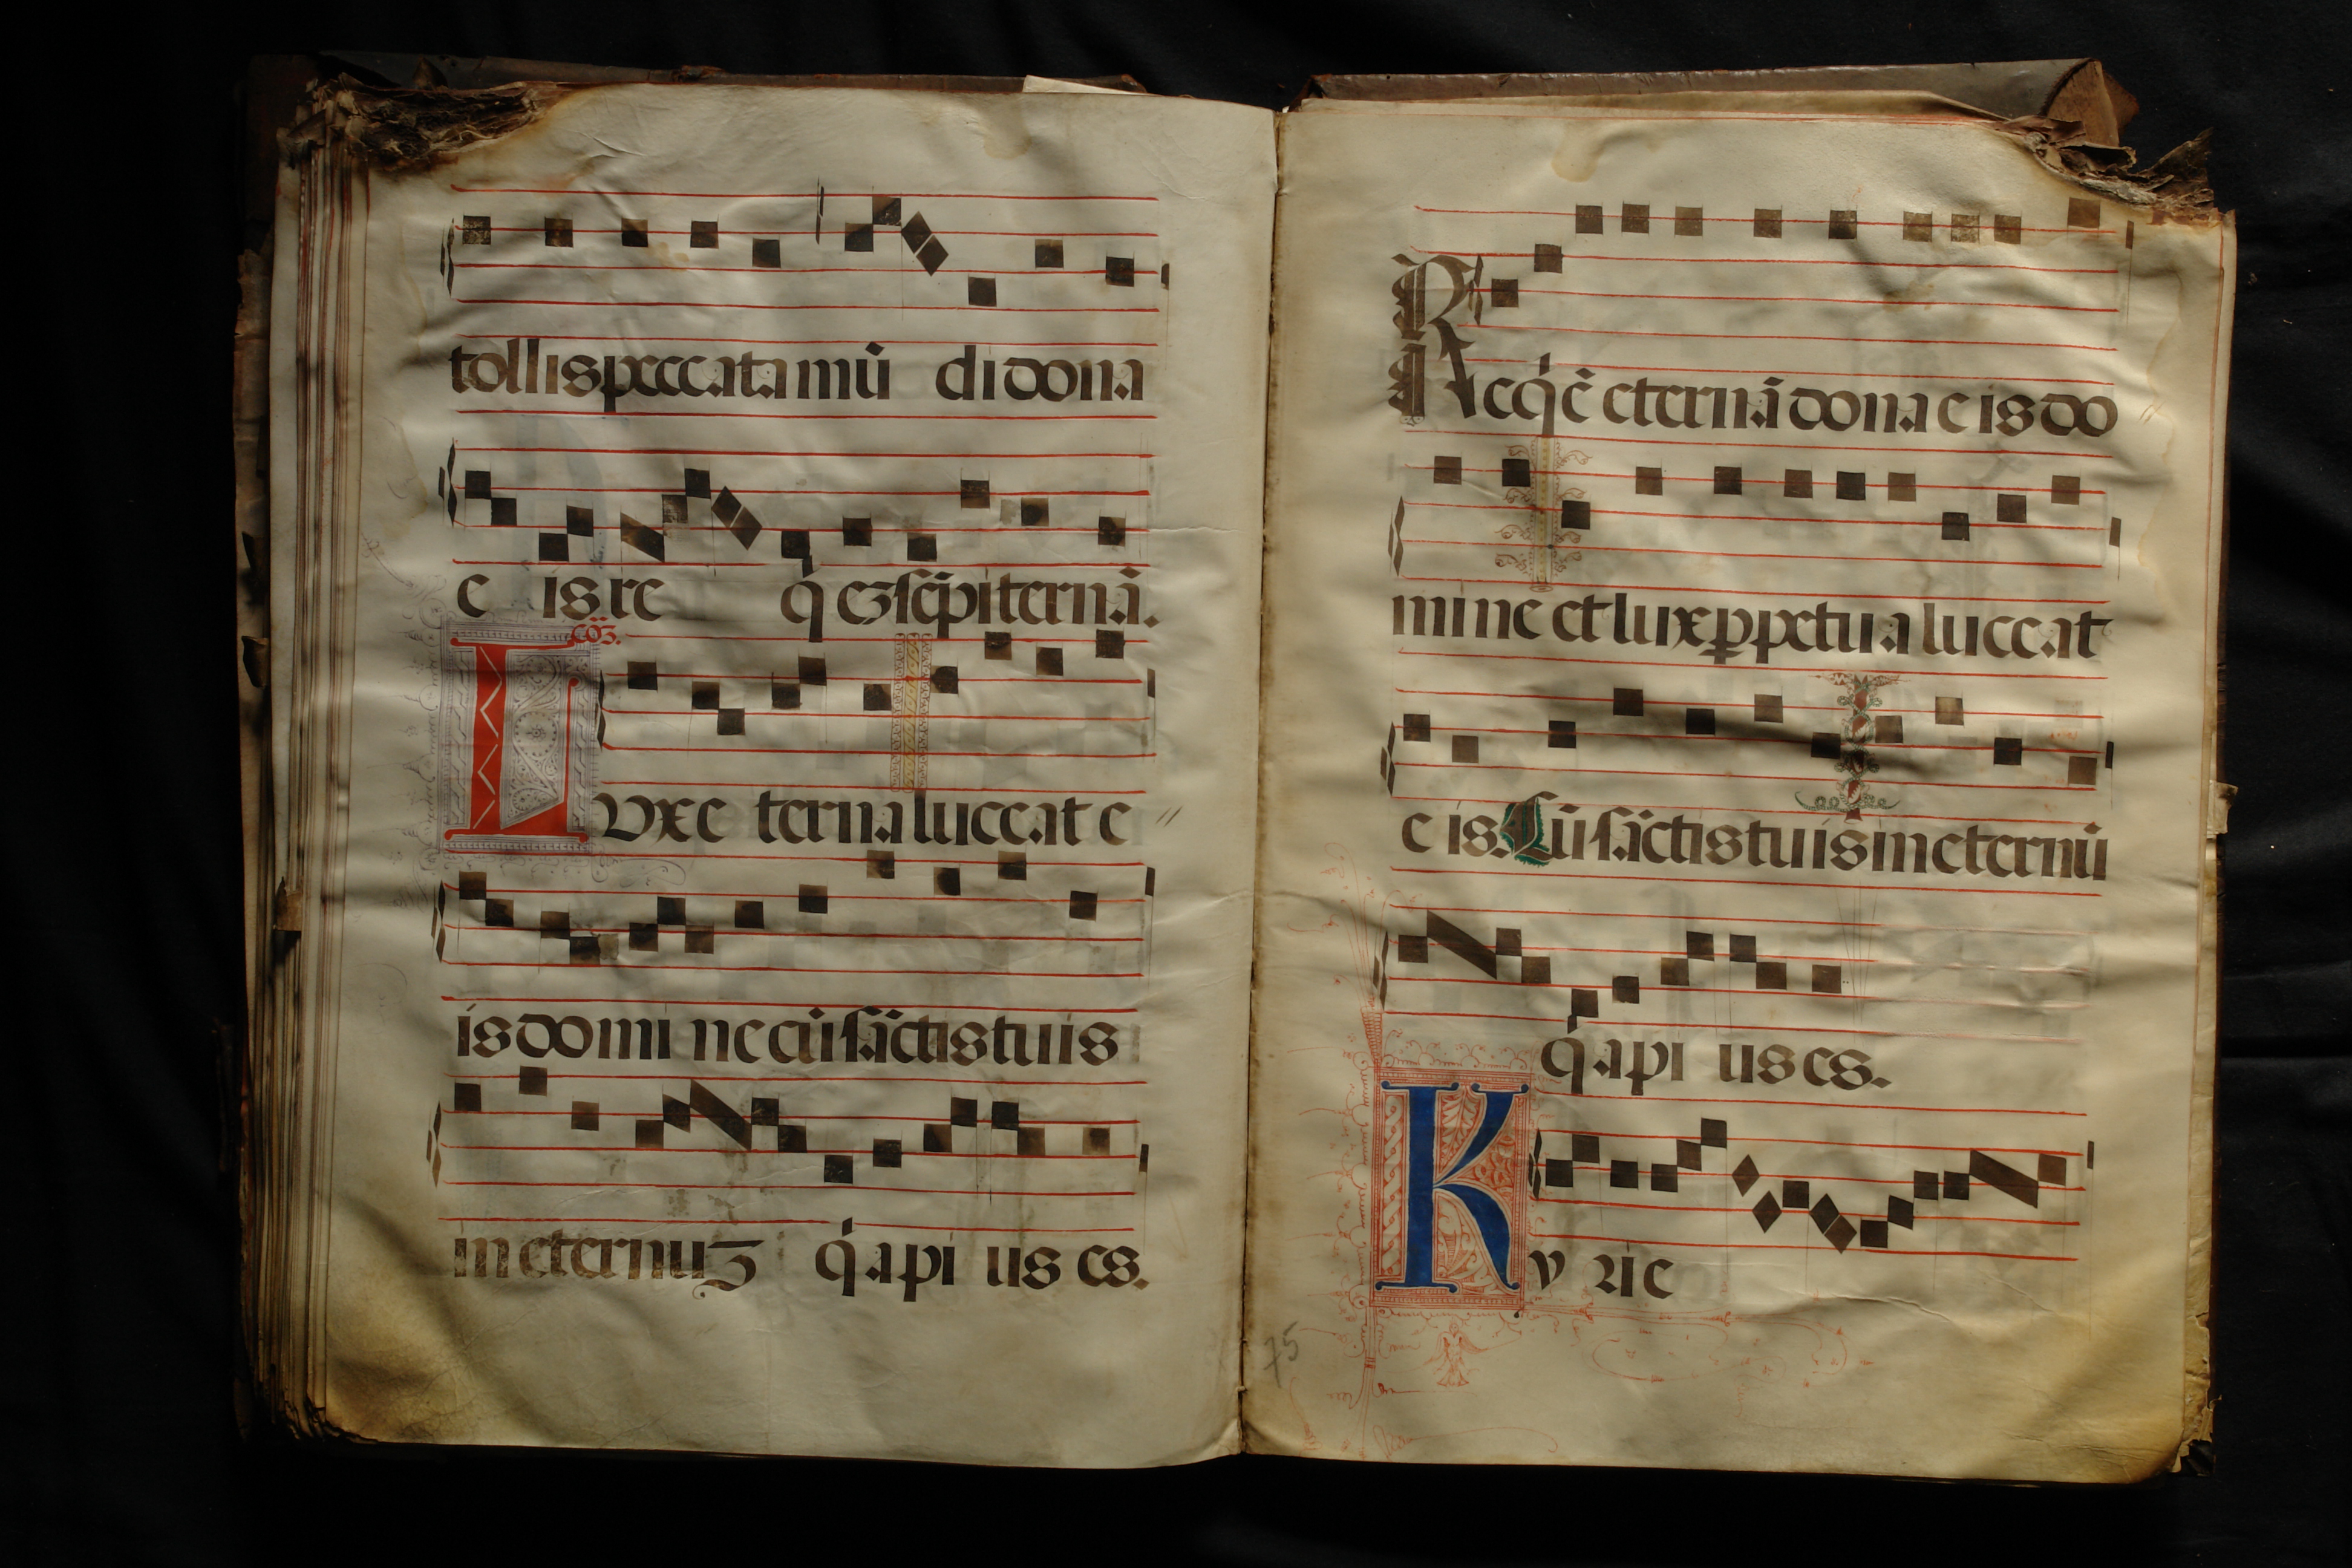 tollis peccata mū di dona
e is re q̄ ez sēpiternā.
cōʒ.
Lux e terna luceat e
is domi ne cū sāctis tuis
in eternuʒ q̇a pi us es.
Reqꝫē eternā dona eis do
mine et lux ꝑpetua luceat
e is. Cū sāctis tuis in eternū
q̇a pi us es.
Ky rie
75